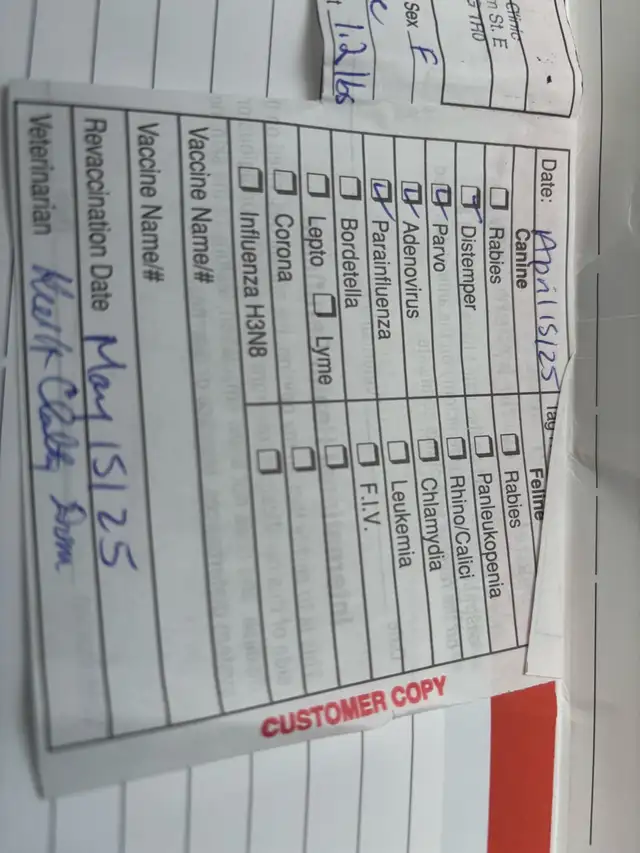 Clinic
m St. E
Sex F
1.2 lbs
Date: April 15/25 Tag
Canine Feline
Rabies Rabies
Distemper Panleukopenia
Parvo Rhino/Calici
Adenovirus Chlamydia
Parainfluenza Leukemia
Bordetella F.I.V.
Lepto Lyme
Corona
Influenza H3N8
Vaccine Name/#
Vaccine Name/#
Revaccination Date May 15/25
Veterinarian
CUSTOMER COPY